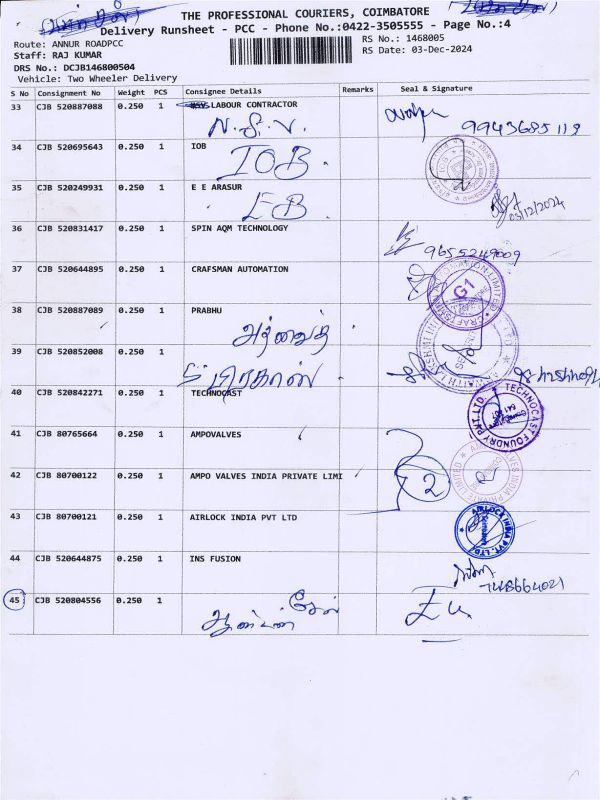 THE PROFESSIONAL COURIERS, COIMBATORE
Delivery Runsheet - PCC - Phone No.:0422-3505555 - Page No.:4
Route: ANNUR ROADPCC
RS No.: 1468005
Staff: RAJ KUMAR
RS Date: 03-Dec-2024
DRS No.: DCJB146800504
Vehicle: Two Wheeler Delivery
S No Consignment No Weight PCS Consignee Details Remarks Seal & Signature
33 CJB 520887088 0.250 1 LABOUR CONTRACTOR
N.S.V. 9943685119
34 CJB 520695643 0.250 1 IOB
IOB
35 CJB 520249931 0.250 1 E E ARASUR
EB 03/12/2024
36 CJB 520831417 0.250 1 SPIN AQM TECHNOLOGY
9655249009
37 CJB 520644895 0.250 1 CRAFSMAN AUTOMATION
G1
38 CJB 520887089 0.250 1 PRABHU
39 CJB 520852008 0.250 1
40 CJB 520842271 0.250 1 TECHNOCAST
TECHNOCAST FOUNDRY PVT. LTD.
41 CJB 80765664 0.250 1 AMPOVALVES
42 CJB 80700122 0.250 1 AMPO VALVES INDIA PRIVATE LIMI
2
43 CJB 80700121 0.250 1 AIRLOCK INDIA PVT LTD
AIRLOCK INDIA PVT. LTD.
44 CJB 520644875 0.250 1 INS FUSION
45 CJB 520804556 0.250 1